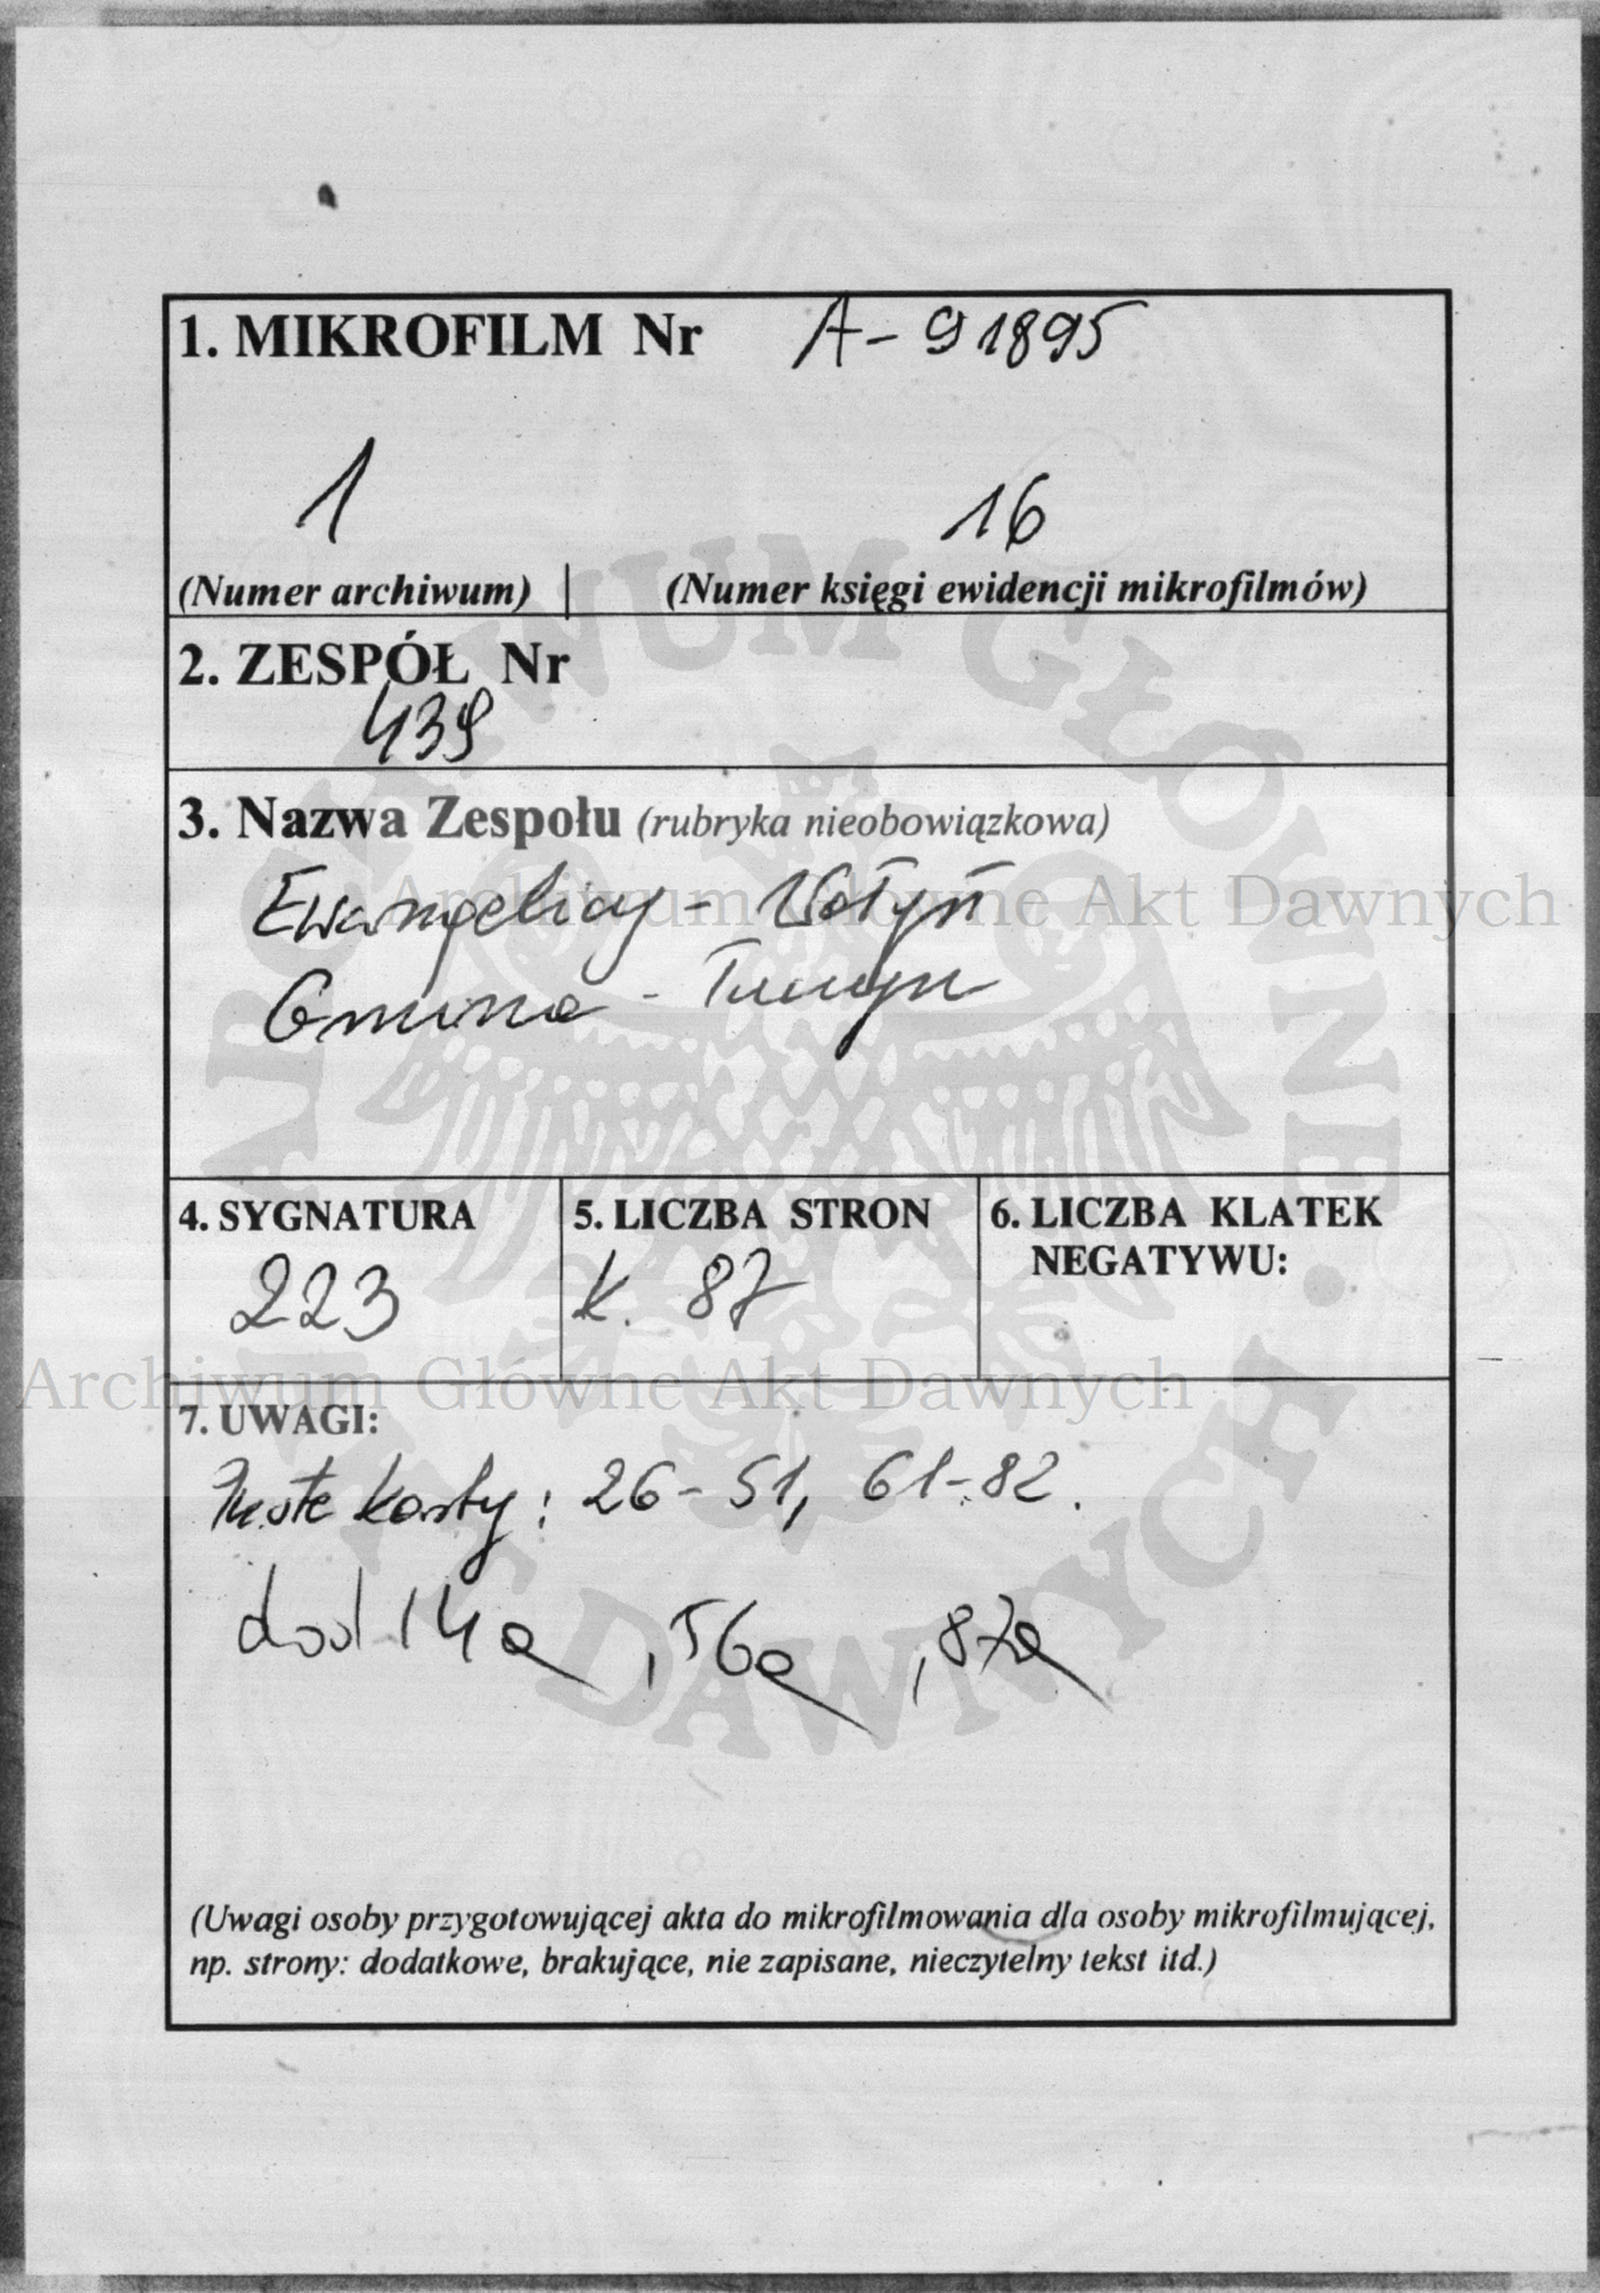 1. MIKROFILM Nr A-91895
1 16
(Numer archiwum) | (Numer księgi ewidencji mikrofilmów)
2. ZESPÓŁ Nr
439
3. Nazwa Zespołu (rubryka nieobowiązkowa)
Ewangelicy - Wołyń
Archiwum Główne Akt Dawnych
Gmina - Tuczyn
4. SYGNATURA
223
5. LICZBA STRON
K. 87
6. LICZBA KLATEK
NEGATYWU:
Archiwum Główne Akt Dawnych
7. UWAGI:
Puste karty: 26-51, 61-82.
dod 14a, 56a, 87a
(Uwagi osoby przygotowującej akta do mikrofilmowania dla osoby mikrofilmującej,
np. strony: dodatkowe, brakujące, nie zapisane, nieczytelny tekst itd.)
ARCHIWUM GŁÓWNE AKT DAWNYCH